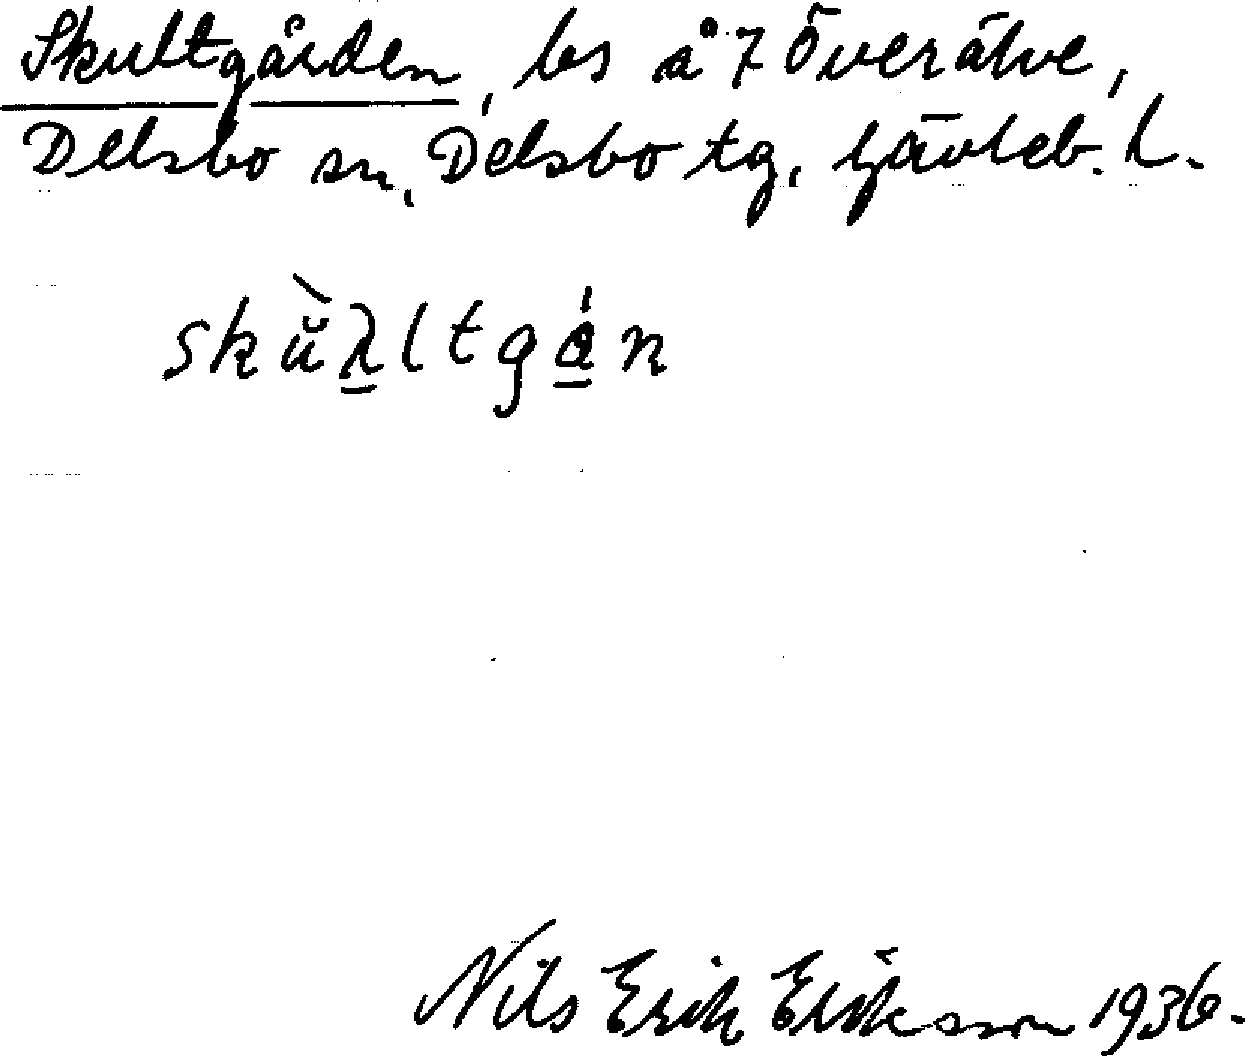 Skultgården, bs å 7 Överälve,
Delsbo sn, Delsbo tg, Gävleb. l.
Nils Erik Eriksson 1936.